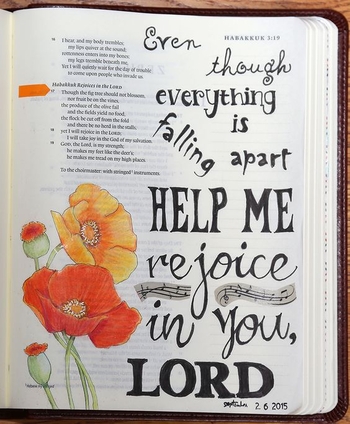 HABAKKUK 3:19
16 I hear, and my body trembles;
my lips quiver at the sound;
rottenness enters into my bones;
my legs tremble beneath me.
Yet I will quietly wait for the day of trouble
to come upon people who invade us.
Habakkuk Rejoices in the LORD
17 Though the fig tree should not blossom,
nor fruit be on the vines,
the produce of the olive fail
and the fields yield no food,
the flock be cut off from the fold
and there be no herd in the stalls,
18 yet I will rejoice in the LORD;
I will take joy in the God of my salvation.
19 GOD, the Lord, is my strength;
he makes my feet like the deer's;
he makes me tread on my high places.
To the choirmaster: with stringed instruments.
Even
though
everything
is
falling
apart
HELP ME
rejoice
in You,
LORD
2.6 2015